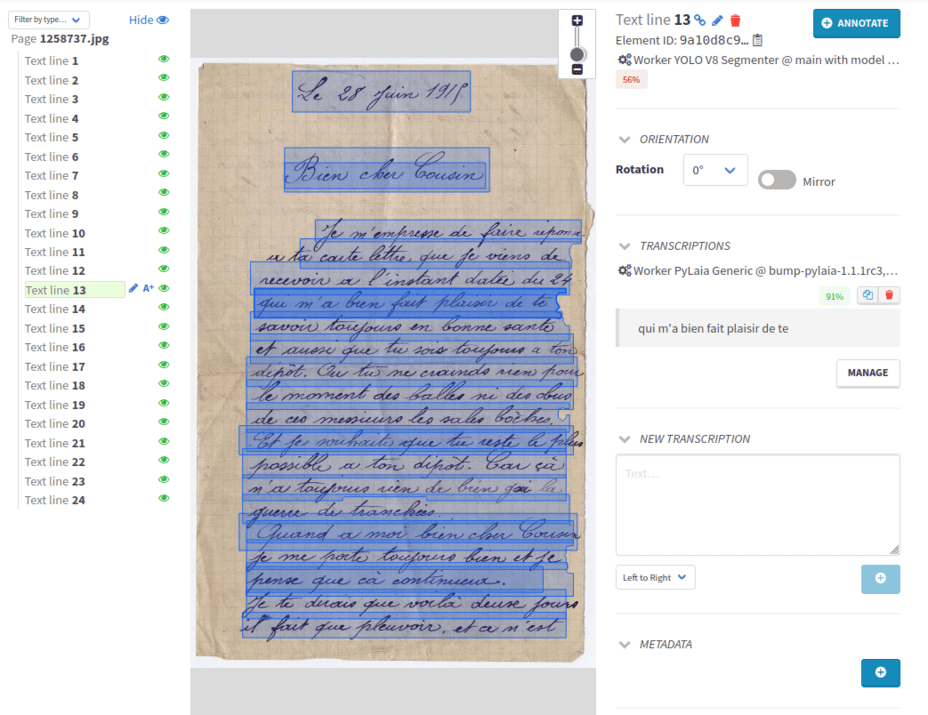 Filter by type...
Hide
Page 1258737.jpg
Text line 1
Text line 2
Text line 3
Text line 4
Text line 5
Text line 6
Text line 7
Text line 8
Text line 9
Text line 10
Text line 11
Text line 12
Text line 13
A+
Text line 14
Text line 15
Text line 16
Text line 17
Text line 18
Text line 19
Text line 20
Text line 21
Text line 22
Text line 23
Text line 24
Le 28 Juin 1915
Bien cher Cousin
Je m'empresse de faire répons
a ta carte lettre, que je viens de
recevoir a l'instant datée du 24
qui m'a bien fait plaisir de te
savoir toujours en bonne santé
et aussi que tu sois toujours a ton
dépôt. Ou tu ne crainds rien pour
le moment des balles ni des obus
de ces messieurs les sales bôches.
Et je souhaite que tu reste le plus
possible a ton dépôt. Car çà
n'a toujours rien de bien gai la
guerre de tranchées.
Quand a moi bien cher Cousin
je me porte toujours bien et je
pense que cà continuera.
Je te dirais que voilà deux jours
il fait que pleuvoir, et ca n'est
Text line 13
ANNOTATE
Element ID: 9a10d8c9...
Worker YOLO V8 Segmenter @ main with model ...
56%
ORIENTATION
Rotation
0°
Mirror
TRANSCRIPTIONS
Worker PyLaia Generic @ bump-pylaia-1.1.1rc3,...
91%
qui m'a bien fait plaisir de te
MANAGE
NEW TRANSCRIPTION
Text...
Left to Right
METADATA